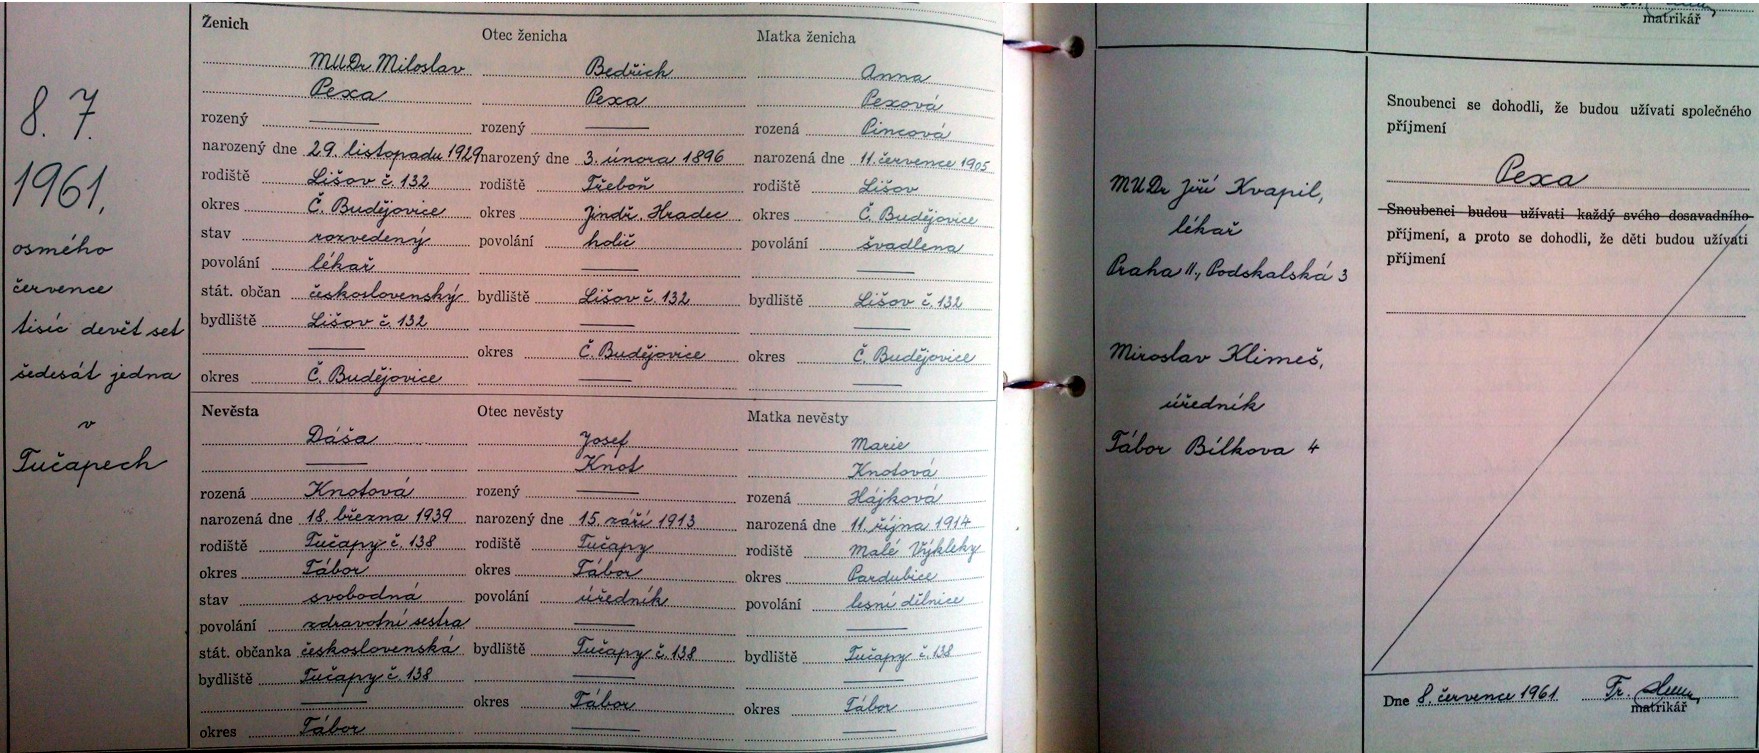 8. 7.
1961,
osmého
července
tisíc devět set
šedesát jedna
v
Tučapech
Ženich
MUDr Miloslav
Pexa
rozený
narozený dne 29. listopadu 1929
rodiště Lišov č. 132
okres Č. Budějovice
stav rozvedený
povolání lékař
stát. občan československý
bydliště Lišov č. 132
okres Č. Budějovice
Otec ženicha
Bedřich
Pexa
rozený
narozený dne 3. února 1896
rodiště Třeboň
okres Jindř. Hradec
povolání holič
bydliště Lišov č. 132
okres Č. Budějovice
Matka ženicha
Anna
Pexová
rozená Pincová
narozená dne 11. července 1905
rodiště Lišov
okres Č. Budějovice
povolání švadlena
bydliště Lišov č. 132
okres Č. Budějovice
Nevěsta
Dáša
rozená Knotová
narozená dne 18. března 1939
rodiště Tučapy č. 138
okres Tábor
stav svobodná
povolání zdravotní sestra
stát. občanka československá
bydliště Tučapy č. 138
okres Tábor
Otec nevěsty
Josef
Knot
rozený
narozený dne 15. září 1913
rodiště Tučapy
okres Tábor
povolání úředník
bydliště Tučapy č. 138
okres Tábor
Matka nevěsty
Marie
Knotová
rozená Hájková
narozená dne 11. října 1914
rodiště Malé Výkleky
okres Pardubice
povolání lesní dělnice
bydliště Tučapy č. 138
okres Tábor
MUDr Jiří Kvapil,
lékař
Praha II., Podskalská 3
Miroslav Klimeš,
úředník
Tábor Bílkova 4
matrikář
Snoubenci se dohodli, že budou užívati společného
příjmení
Pexa
Snoubenci budou užívati každý svého dosavadního
příjmení, a proto se dohodli, že děti budou užívati
příjmení
Dne 8. července 1961 Fr.
matrikář